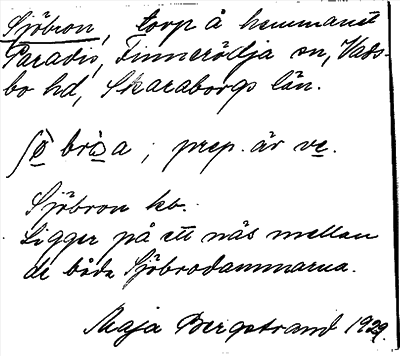 Sjöbron, torp å hemmanet
Paradis, Finnerödja sn, Vads-
bo hd, Skaraborgs län.
; prep. är ve.
Sjöbron kv.
Ligger på ett näs mellan
de båda Sjöbrodammarna.
Maja Bergstrand 1929.